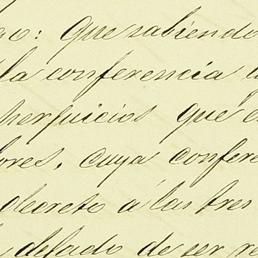 ao: Que sabiendo
la conferencia
perjuicios que
ores, cuya confere
decreto á las tres
dejado de ser re